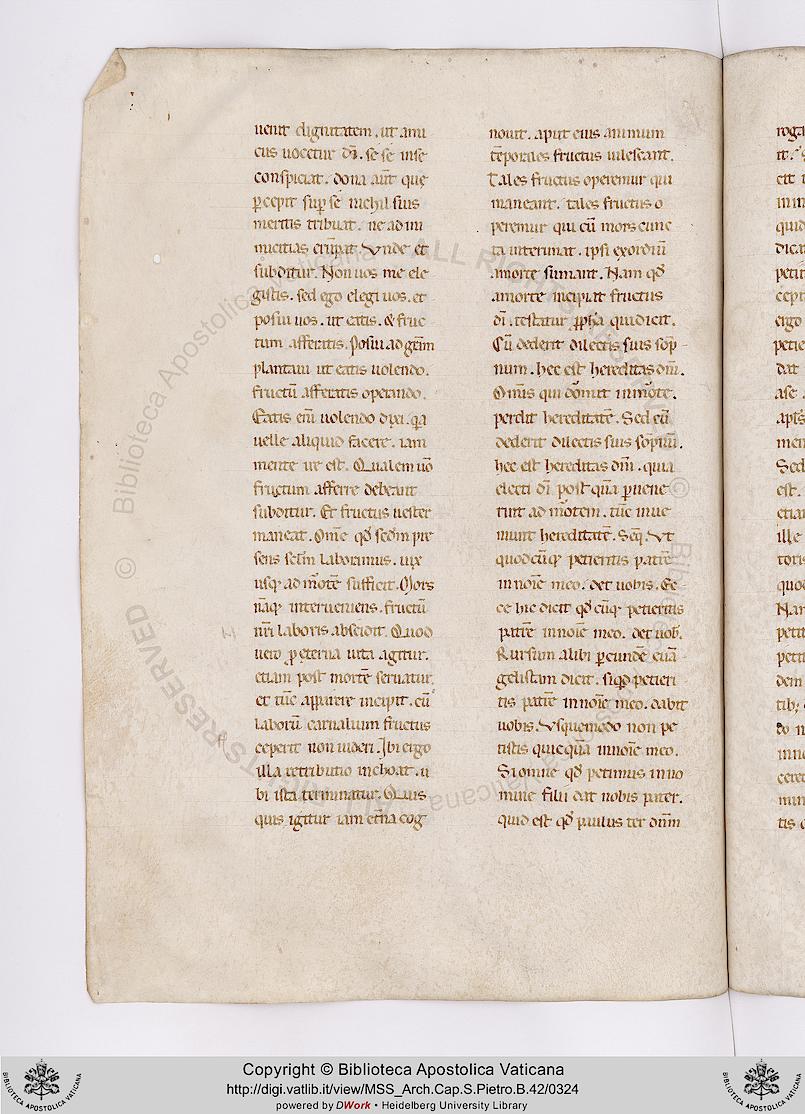 uenit dignitatem. ut ami
cus uocetur dī. se se inse
conspiciat. dona aūt que
ꝑcepit suꝑ se nichil suis
meritis tribuat. ne ad ini
micitias erūpat. Vnde et
subditur. Non uos me ele
gistis. sed ego elegi uos. et
posui uos. ut eatis. & fruc
tum afferatis. Posui ad grām
plantaui ut eatis uolendo.
fructū afferatis operando.
Eatis eni uolendo dixi. qa
uelle aliquid facere. iam
mente ire est. Qualem uō
fructum afferre debeant
subditur. Et fructus uester
maneat. Ome qd scdm pre
sens sclm laborimus. uix
usq; ad morte sufficit. Mors
naq; interueniens. fructū
nri laboris abscidit. Quod
uero ꝑ eterna uita agitur.
etiam post morte seruatur.
et tūc apparere incipit. cū
laborū carnalium fructus
ceperit non uideri. Ibi ergo
illa retributio inchoat. u
bi ista terminatur. Quis
quis igitur iam etna cog
nouit. aput eius animum
tēporales fructus uilescant.
Tales fructus operemur qui
maneant. tales fructus o
peremur qui cū mors cunc
ta interimat. ipsi exordiū
amorte sumant. Nam qd
amorte incipiat fructus
dī. testatur ꝓpha qui dicit.
Cū dederit dilectis suis sop
num. hec est hereditas dnī.
Omis qui domit in mote.
perdit hereditatē. Sed cū
dederit dilectis suis sopnū.
hec est hereditas dnī. quia
electi dī post quā ꝑuene
rint ad mortem. tūc inue
niunt hereditatē. Seq. Vt
quodcūq; petieritis patrē
in noīe meo. det uobis. Ec
ce hic dicit qd cūq; petieritis
patrē in noīe meo. det uob.
Rursum alibi ꝑ eundē euā
gelistam dicit. siqd petieri
tis patrē in noīe meo. dabit
uobis. Vsquemodo non pe
tistis quicquā in noīe meo.
Si omne qd petimus in no
mine filii dat nobis pater.
quid est qd paulus ter dnm
roga
petit
ergo
dat
est.
etiam
ille
Copyright © Biblioteca Apostolica Vaticana
http://digi.vatlib.it/view/MSS_Arch.Cap.S.Pietro.B.42/0324
powered by DWork • Heidelberg University Library